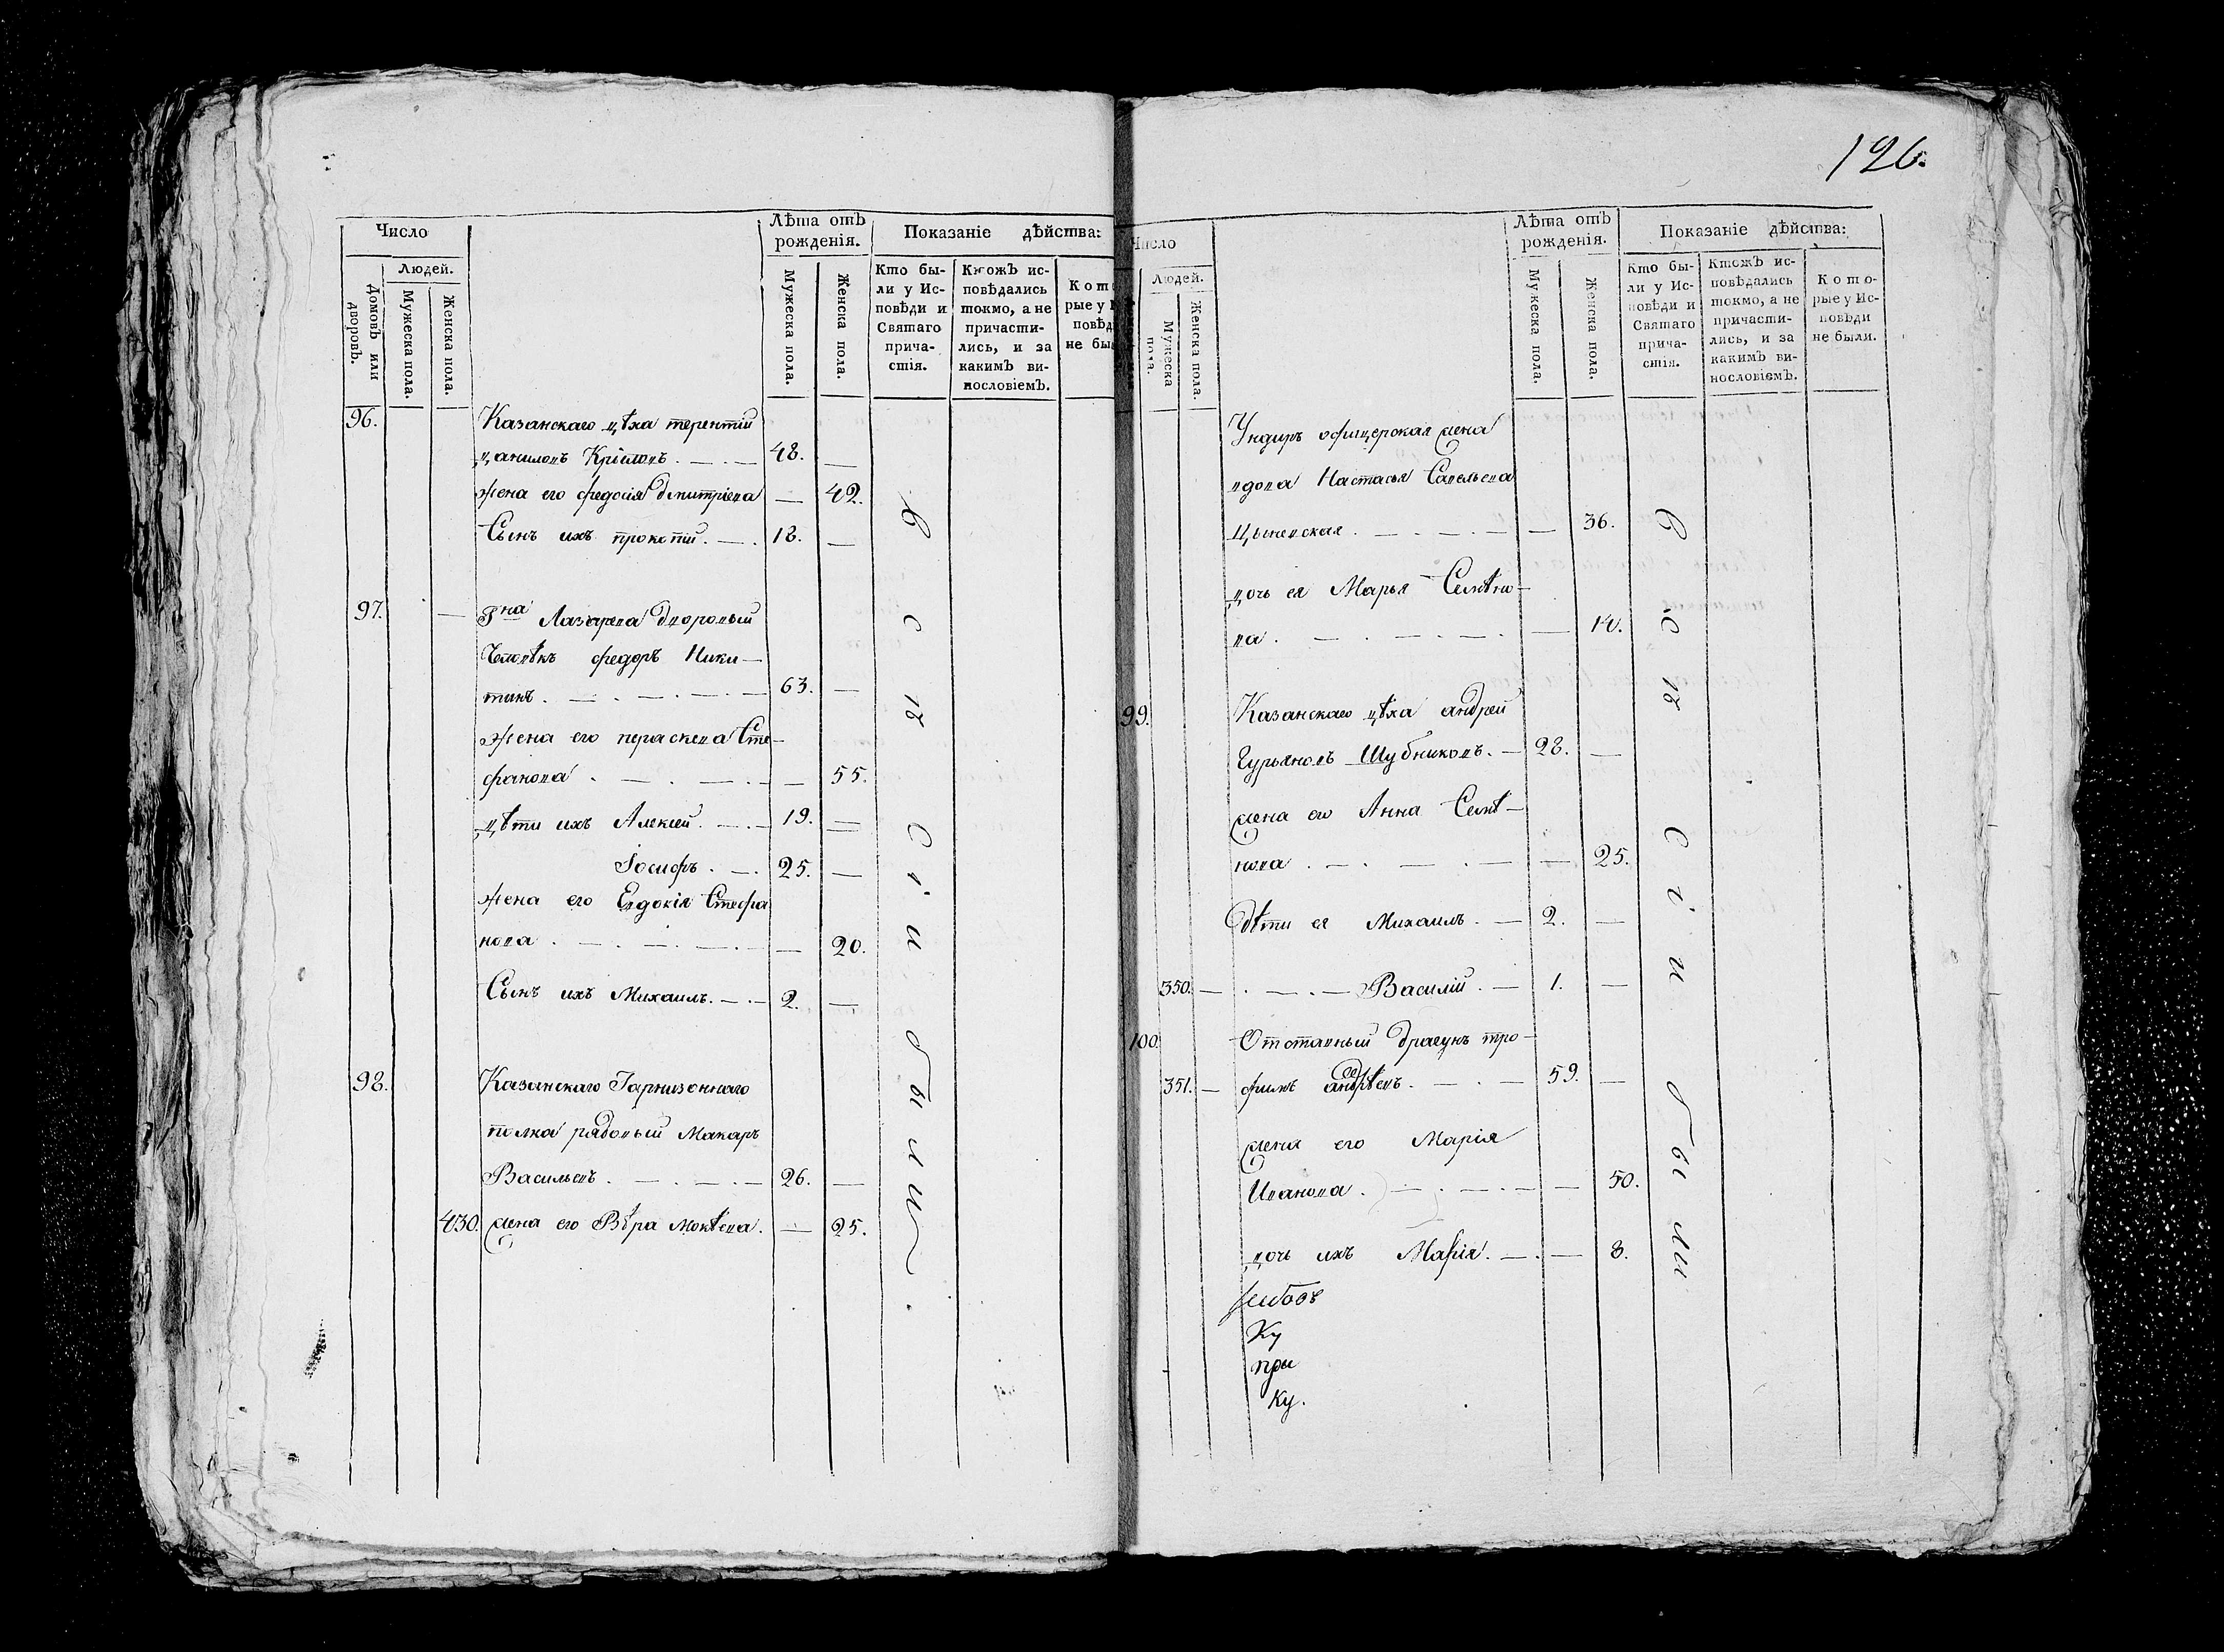 126.
Число
Лѣта отъ
рожденія.
Показаніе дѣйства:
Домовъ или
дворовъ.
Людей.
Мужеска пола.
Женска пола.
Мужеска пола.
Женска пола.
Кто бы-
ли у Ис-
повѣди и
Святаго
прича-
стія.
Ктожъ ис-
повѣдались
токмо, а не
причасти-
лись, и за
какимъ ви-
нословіемъ.
Кото
рые у И
повѣд
не был
96. Казанскаго цѣха терентій
данилоя Крїловъ. — . — 48. —
жена его федосія дмитріева — 42.
Сынъ ихъ прокопій. — . 18. —
97. — Гна Лазарева дворовый
Человѣкъ федоръ Ники—
тинъ. — . — . — . — 63. —
жена его параскева Сте—
фанова . — . — . — — 55.
дѣти ихъ Алексей. — . — 19. —
Іосифъ . — . 25. —
жена его Евдокія Стефа
нова . — . — . — . — — 20.
Сынъ ихъ Михаилъ. — . — 2. —
98. Казанскаго Гарнизоннаго
полка рядовый Макаръ
Васильевъ . — . — . — 26. —
430. жена его Вѣра Мокѣева. — 25.
всѣ
Сіи
были.
Число
Лѣта отъ
рожденія.
Показаніе дѣйства:
Людей.
Мужеска
пола.
Женска пола.
Мужеска пола.
Женска пола.
Кто бы-
ли у Ис-
повѣди и
Святаго
прича-
стія.
Ктожъ ис-
повѣдались
токмо, а не
причасти-
лись, и за
какимъ ви-
нословіемъ.
Кото-
рые у Ис-
повѣди
не были.
Ундиръ офицерская жена
вдова Настасья Савельева
— 36.
дочь ея Марья Семѣно—
ва . — . — . — . — — 14.
99. Казанскаго цѣха андрей
Гурьяновъ Шубниковъ. — 28. —
жена его Анна Семѣ—
нова . — . — . — — 25.
дѣти ея Михаилъ. — 2. —
350. — . — . — Василій . — 1. —
100. Отставный драгунъ тро—
351. — фимъ андрѣевъ. — . — 59. —
жена его Марія
Иванова . — . — . — — 50.
дочь ихъ Марія. — . — 8.
Ку
при
ку.
всѣ
Сіи
были